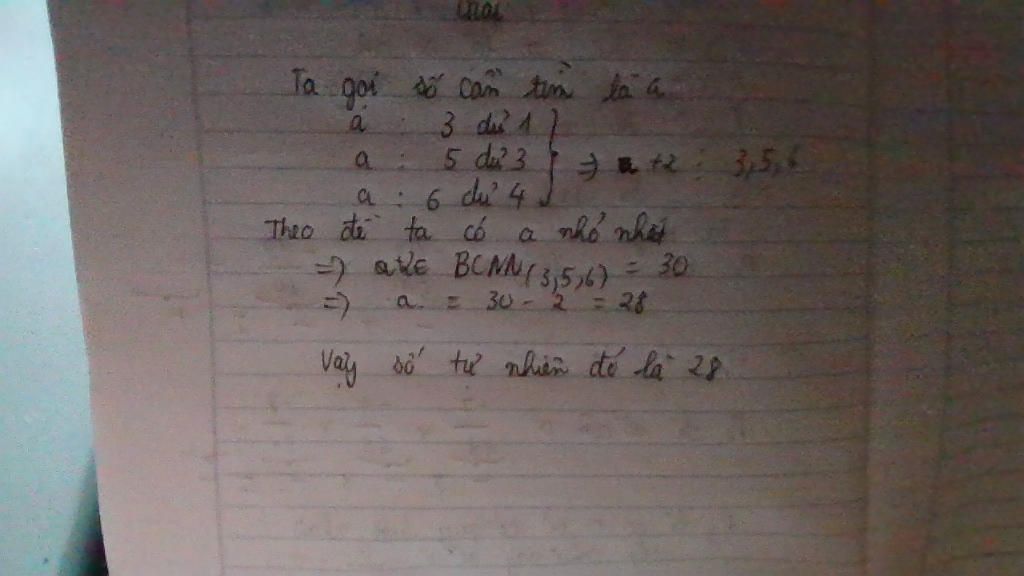 Ta gọi số cần tìm là a
a : 3 dư 1
a : 5 dư 3 } => a + 2 : 3,5,6
a : 6 dư 4
Theo đề ta có a nhỏ nhất
=> BCNN(3,5,6) = 30
=> a = 30 - 2 = 28
Vậy số tự nhiên đó là 28